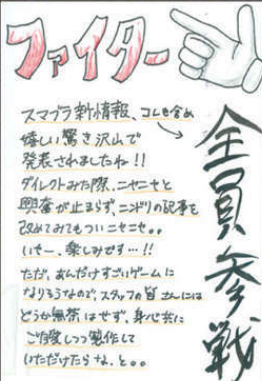 ファイター
全員参戦
スマブラ新情報、コレも含め
嬉しい驚き沢山で
発表されましたね!!
ダイレクトみた際、ニヤニヤと
興奮が止まらず、ニンドリの記事を
改めてみてもついニヤニヤ。。
いやー、楽しみです…!!
ただ、あんだけすごいゲームに
なりそうなので、スタッフの皆さんには
どうか無茶はせず、身心共に
ご自愛しつつ製作して
いただけたらな、と。。